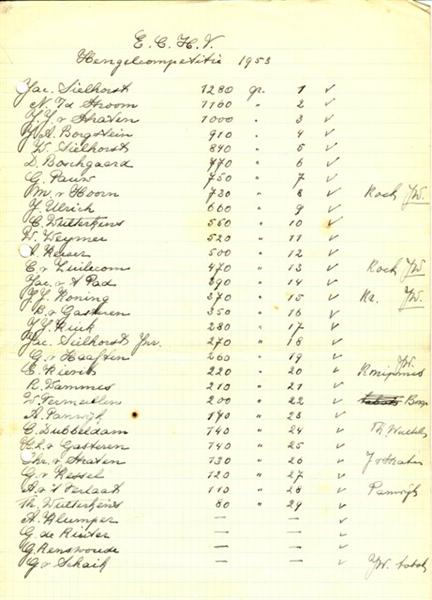 E.C.H.V.
Hengelcompetitie 1953
Jac. Sielhorst 1280 gr. 1 v
N. Td Stroom 1160 " 2 v
J.J. v Straten 1000 " 3 v
A. Borgstein 910 " 4 v
W. Sielhorst 840 " 5 v
D. Boschgaard 770 " 6 v
G. Pauw 750 " 7 v
M. v Hoorn 730 " 8 v Koch JW.
J. Ulrich 660 " 9 v
C. Wulterkens 560 " 10 v
W. Weymer 520 " 11 v
A. Keiser 500 " 12 v
C. v Zuilecom 470 " 13 v Koch JW.
Jac. v d Pad 390 " 14 v
J.J. Koning 370 " 15 v Kr. JW.
B. v Gasteren 350 " 16 v
J.J. Kuik 280 " 17 v
Jac. Sielhorst Jnr. 270 " 18 v
G. v Haaften 260 " 19 v
E. Rievich 220 " 20 v JW.
R. Dammes 210 " 21 v
W. Vermeulen 200 " 22 v
A. Panwijk 190 " 23 v
C. Dubbeldam 140 " 24 v Th.
v Gasteren 140 " 25 v
Chr. v Straten 130 " 26 v J v Straten
G. v Kessel 120 " 27 v
A. v 't Verlaat 110 " 28 v Panwijk
Th. Wulterkens 80 " 29 v
A. Klumper — — v
G. de Ridder — — v
G. Renswoude — — v
G. v Schaik — — v JW.